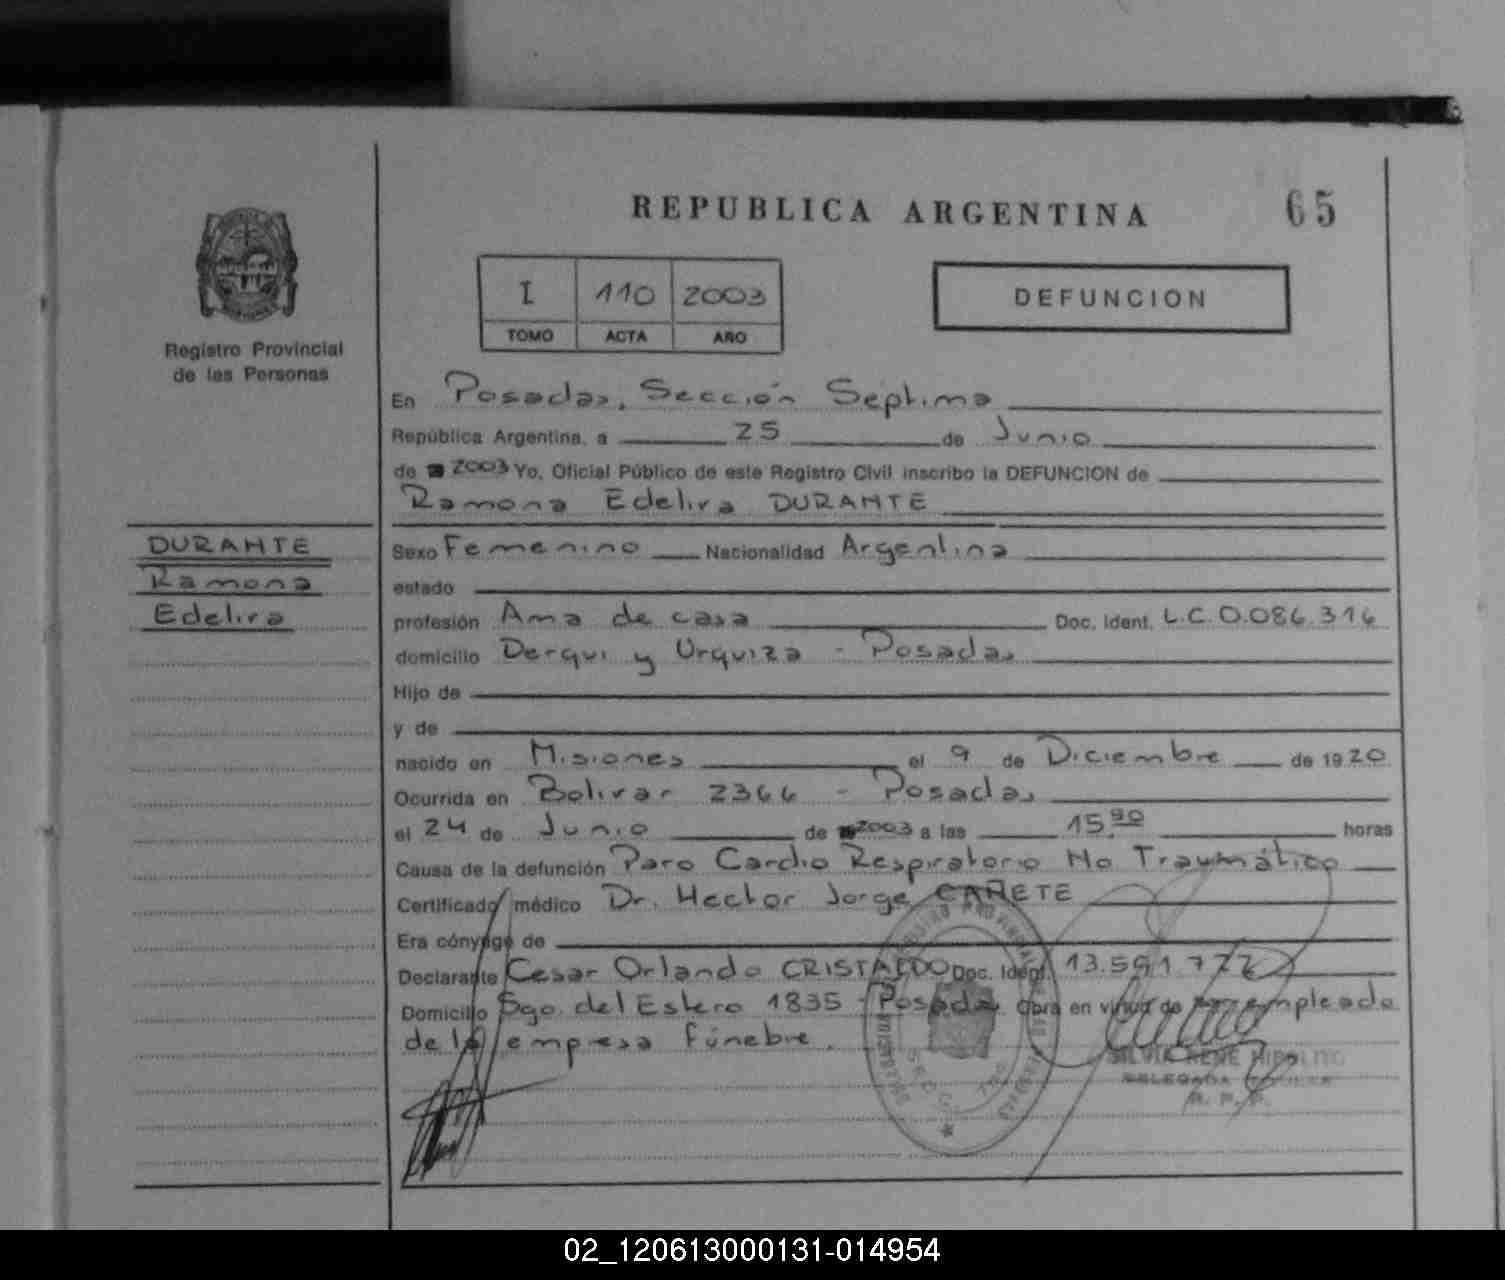 REPUBLICA ARGENTINA
65
I 110 2003
TOMO ACTA AÑO
DEFUNCION
Registro Provincial
de las Personas
En Posadas, Sección Séptima
República Argentina, a 25 de Junio
de 2003 Yo, Oficial Público de este Registro Civil inscribo la DEFUNCION de
Ramona Edelira DURANTE
DURANTE
Ramona
Edelira
Sexo Femenino Nacionalidad Argentina
estado
profesión Ama de casa Doc. Ident. L.C. 0.086.316
domicilio Derqui y Urquiza - Posadas
Hijo de
y de
nacido en Misiones el 9 de Diciembre de 1920
Ocurrida en Bolivar 2366 - Posadas
el 24 de Junio de 2003 a las 15, horas
Causa de la defunción Paro Cardio Respiratorio No Traumático
Certificado médico Dr. Hector Jorge CAÑETE
Era cónyuge de
Declarante Cesar Orlando CRISTALDO Doc. Ident. 13.591.772
Domicilio Sgo. del Estero 1835 - Posadas Obra en virtud de empleado
de la empresa fúnebre.
SILVIA RENE HIPOLITO
DELEGADA TITULAR
R. P. P.
02_120613000131-014954